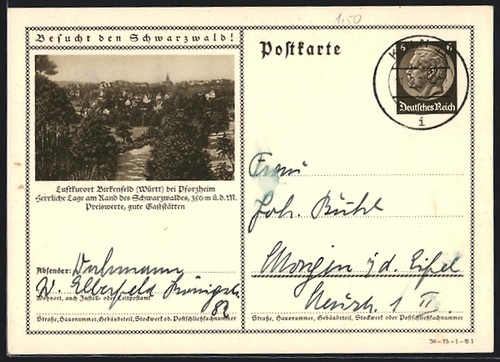 1.50
Besucht den Schwarzwald!
Luftkurort Birkenfeld (Württ) bei Pforzheim
Herrliche Lage am Rand des Schwarzwaldes, 350 m ü.d.M.
Preiswerte, gute Gaststätten
Absender:
W. Elberfeld
Wohnort, auch Zustell- oder Leitpostamt
82
Straße, Hausnummer, Gebäudeteil, Stockwerk od. Postschließfachnummer
Postkarte
6 6
Deutsches Reich
i
Frau
Joh. Rühl
Mayen i/d. Eifel
Neustr. 1 II.
Straße, Hausnummer, Gebäudeteil, Stockwerk oder Postschließfachnummer
36-75-1-B1